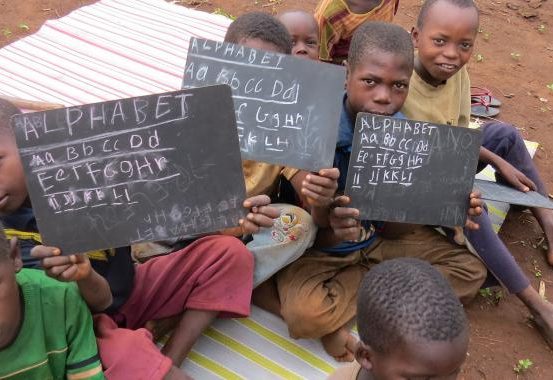 ALPHABET
Aa Bb CC Dd
Ee FF Gg Hh
II JJ KK LI
ALPHABET
Aa Bb CC Dd
G g Hh
K LI
ALPHABET
Aa Bb CC Dd
Ee FF Gg Hh
II JJ KK LI